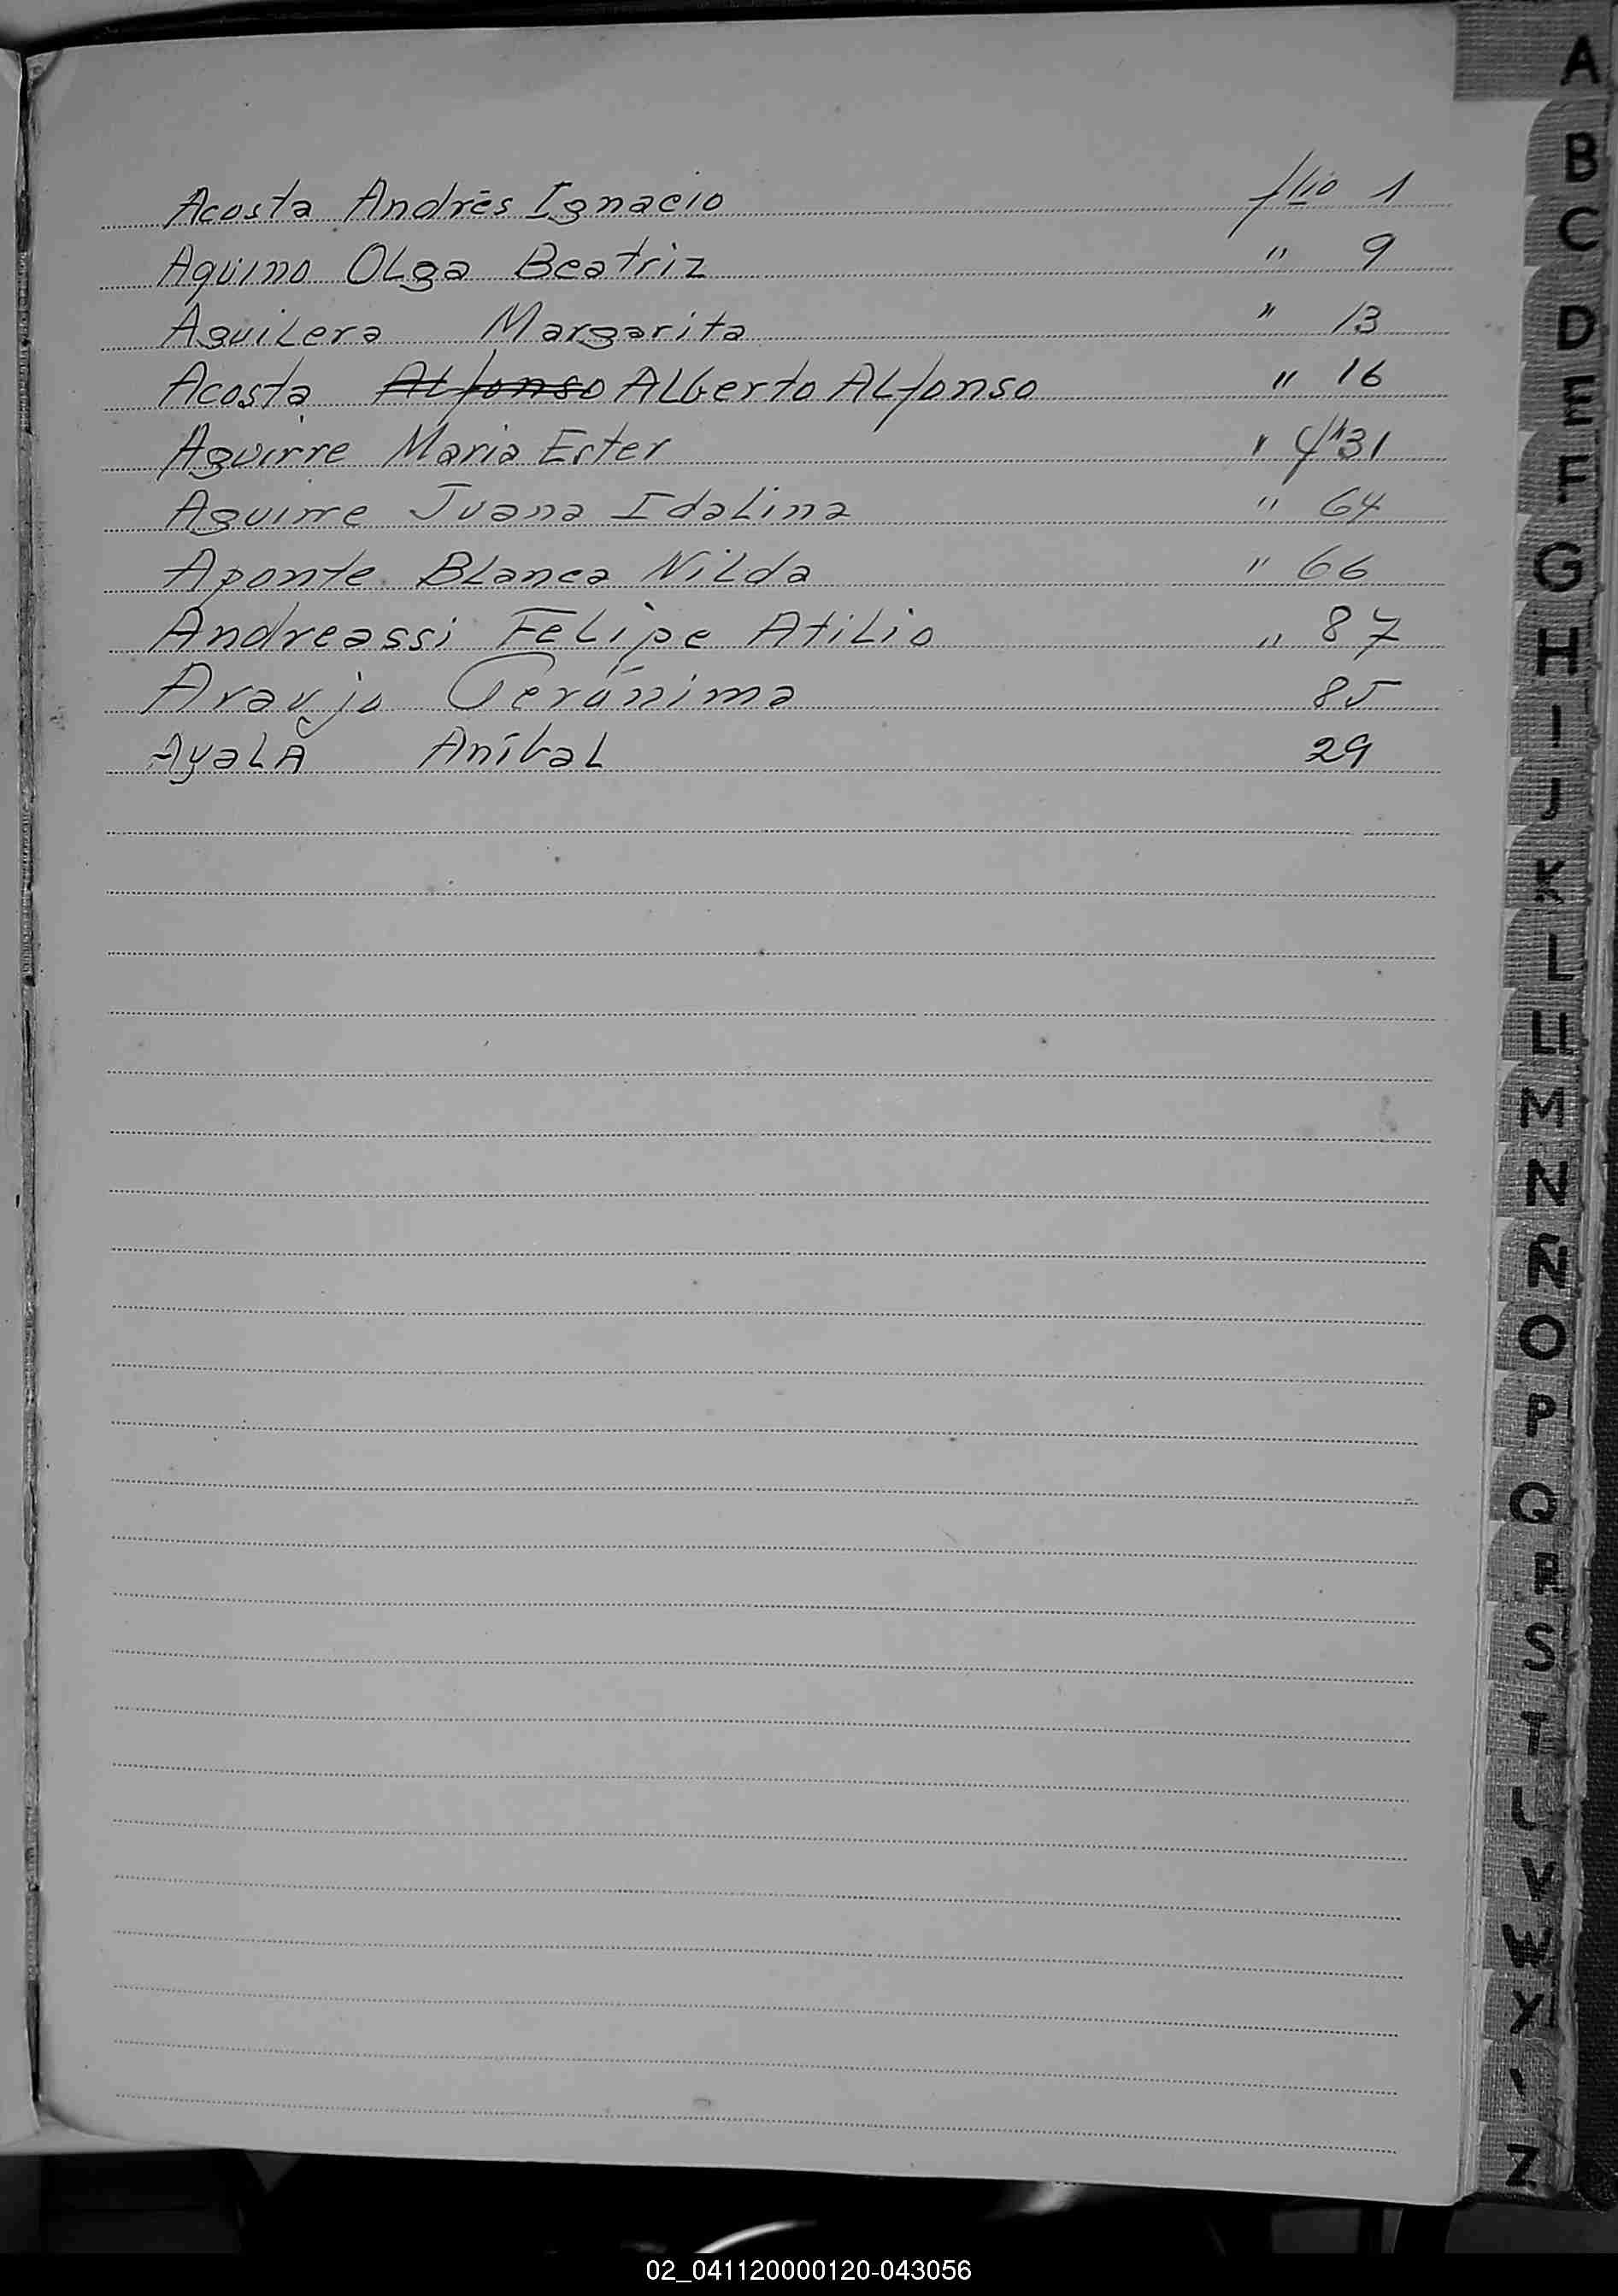 Acosta Andrés Ignacio folio 1
Aquino Olga Beatriz " 9
Aguilera Margarita " 13
Acosta Alfonso Alberto Alfonso " 16
Aguirre Maria Ester " 31
Aguirre Juana Idalina " 64
Aponte Blanca Nilda " 66
Andreassi Felipe Atilio " 87
Araujo Gerónima 85
Ayala Aníbal 29
A
B
C
D
E
F
G
H
I
J
K
L
LL
M
N
Ñ
O
P
Q
R
S
T
V
X
Z
02_041120000120-043056